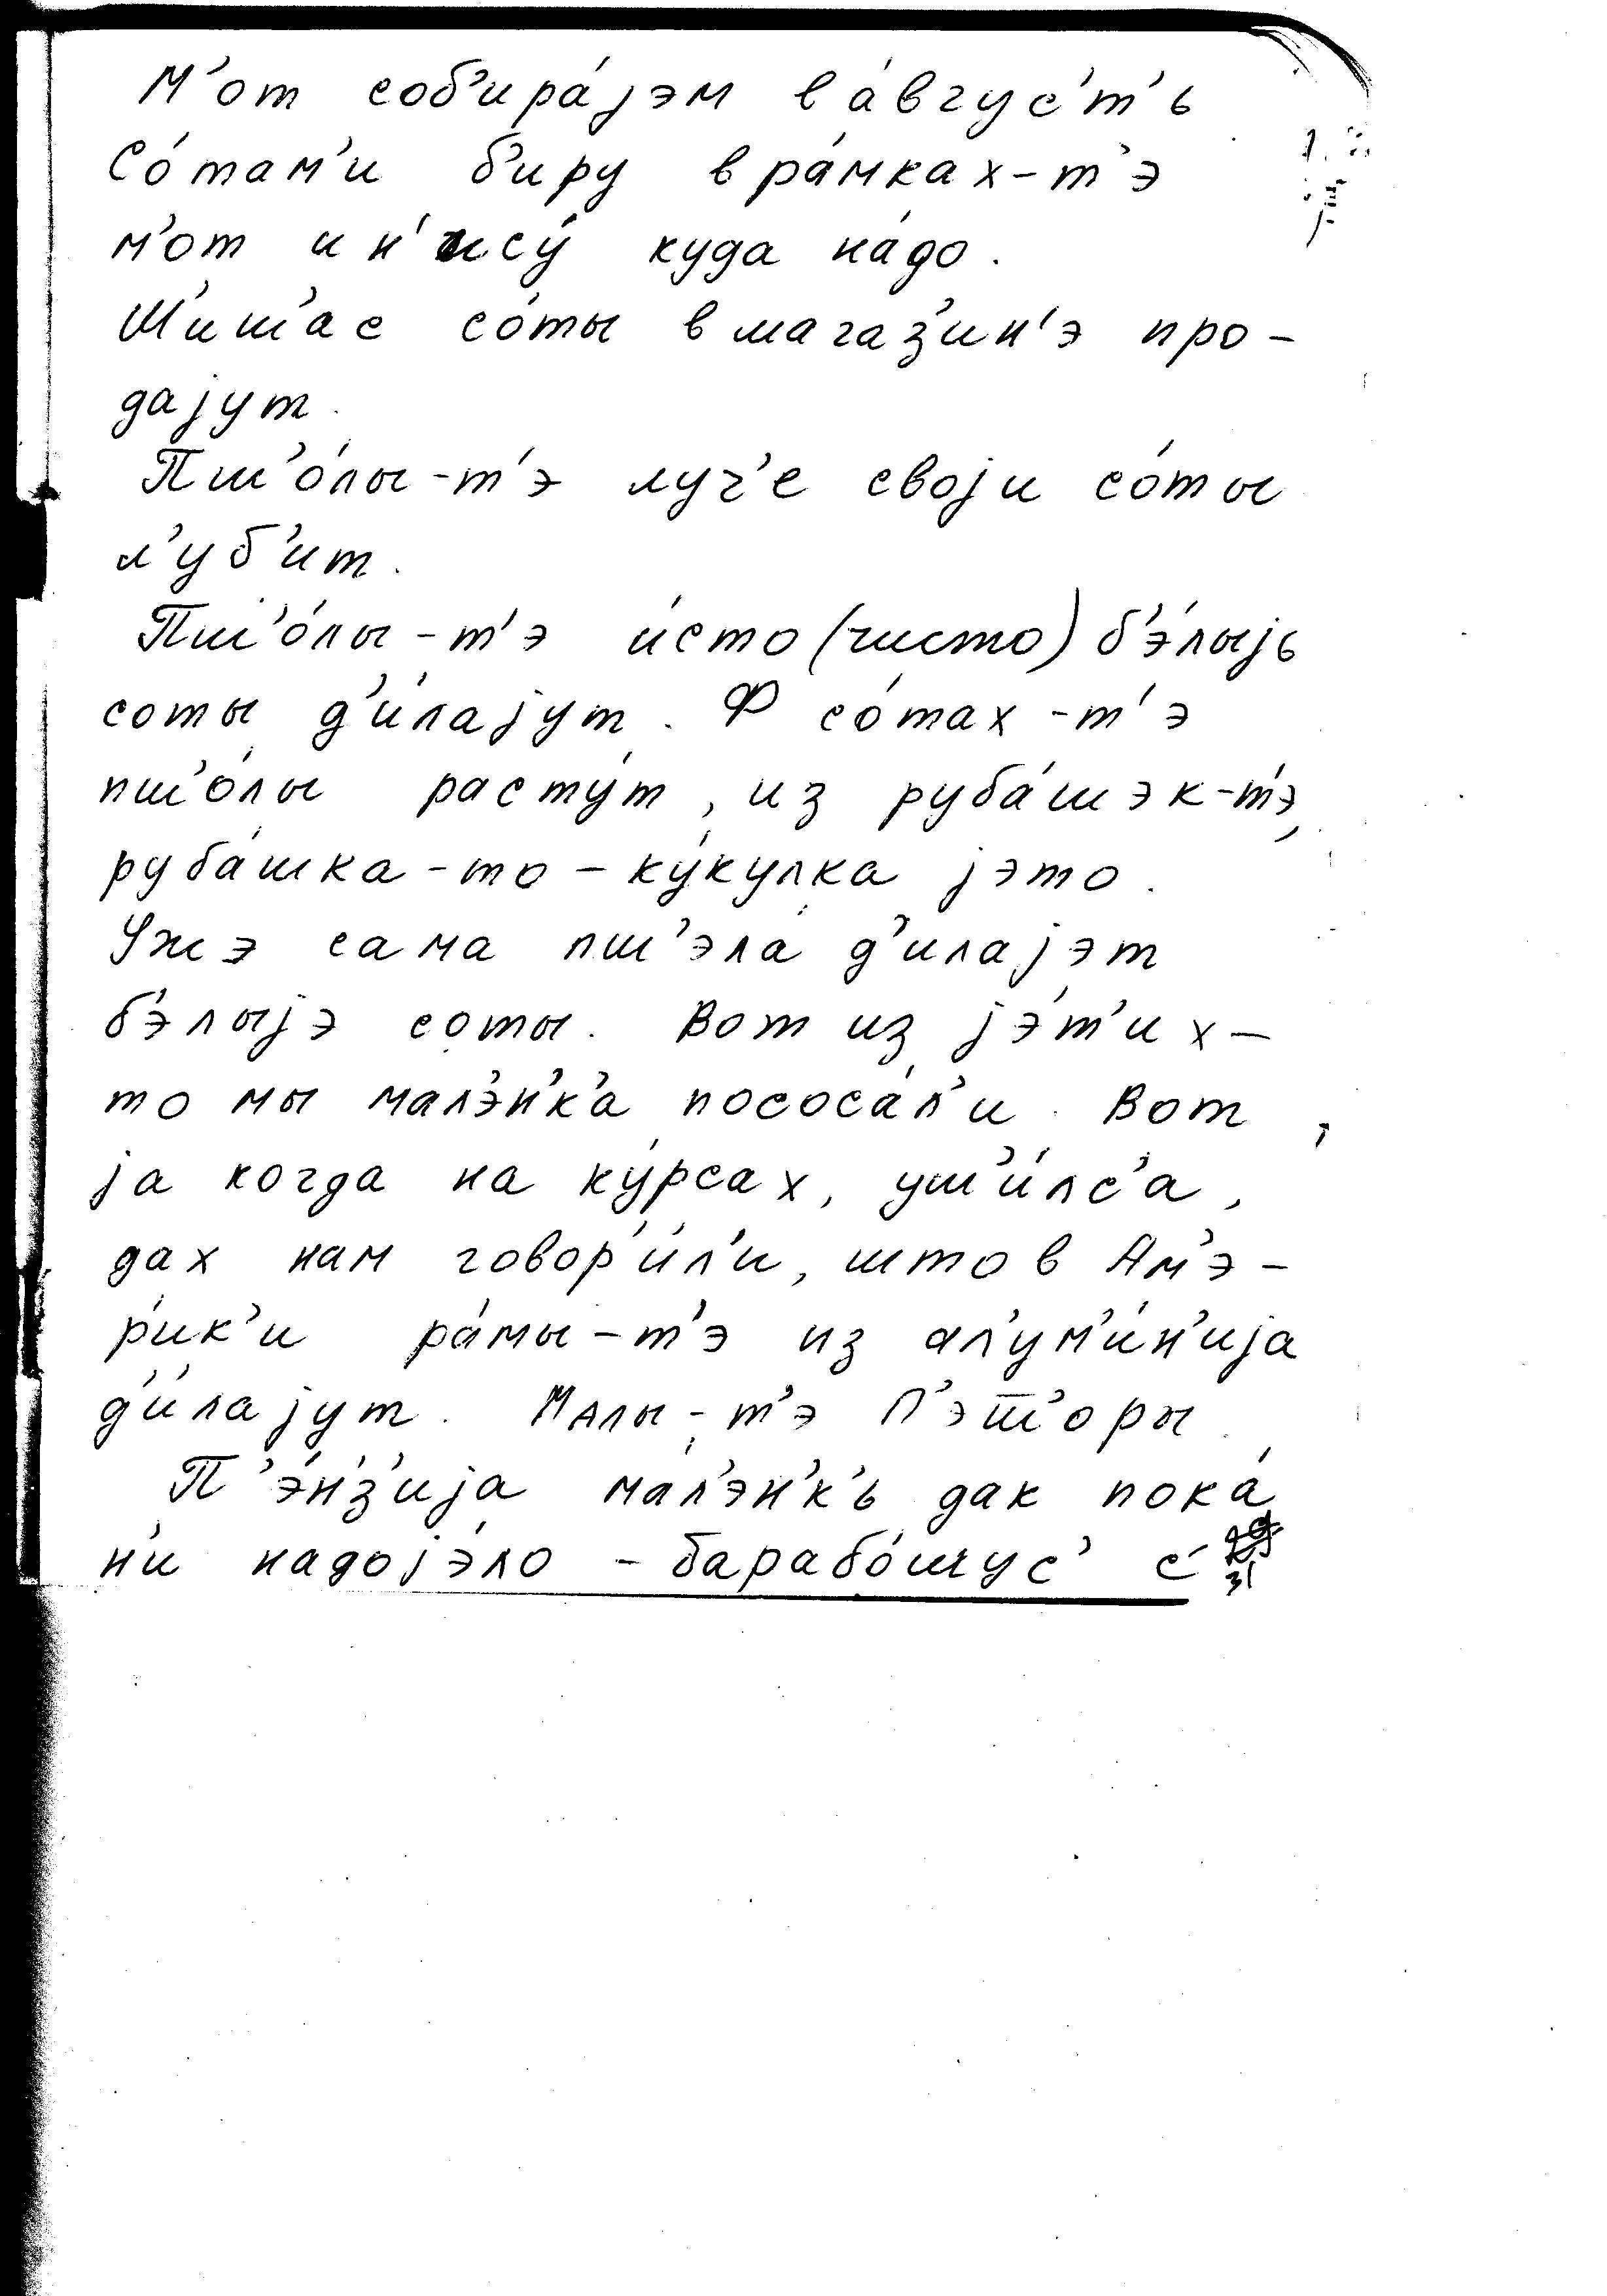 М'от соб'ира́jэм в а́вгус'т'ь
Со́там'и б'иру в ра́мках-т'э
м'от и н'ису́ куда на́до.
Ш'иш'ас со́ты в магаз'ин'э про-
даjут.
Пш'о́лы-т'э луч'е своjи со́ты
л'уб'ит.
Пш'о́лы-т'э и́сто (чисто) б'э́лыjь
соты д'и́лаjут. Ф со́тах-т'э
пш'о́лы расту́т, из руба́шэк-т'э,
руба́шка-то - ку́кулка jэто.
Ужэ сама пш'эла́ д'илаjэт
б'э́лыjэ соты. Вот из jэ́т'их-
то мы мал'э́н'к'а пососа́л'и. Вот
jа когда на ку́рсах, уш'и́лс'а,
дах нам говор'и́л'и, што в Ам'э-
р'ик'и ра́мы-т'э из ал'ум'и́н'иjа
д'и́лаjут. Малы-т'э П'эш'оры.
П'э́нз'иjа ма́л'эн'к'ь дак пока́
н'и надоjэ́ло - барабо́шус' с'